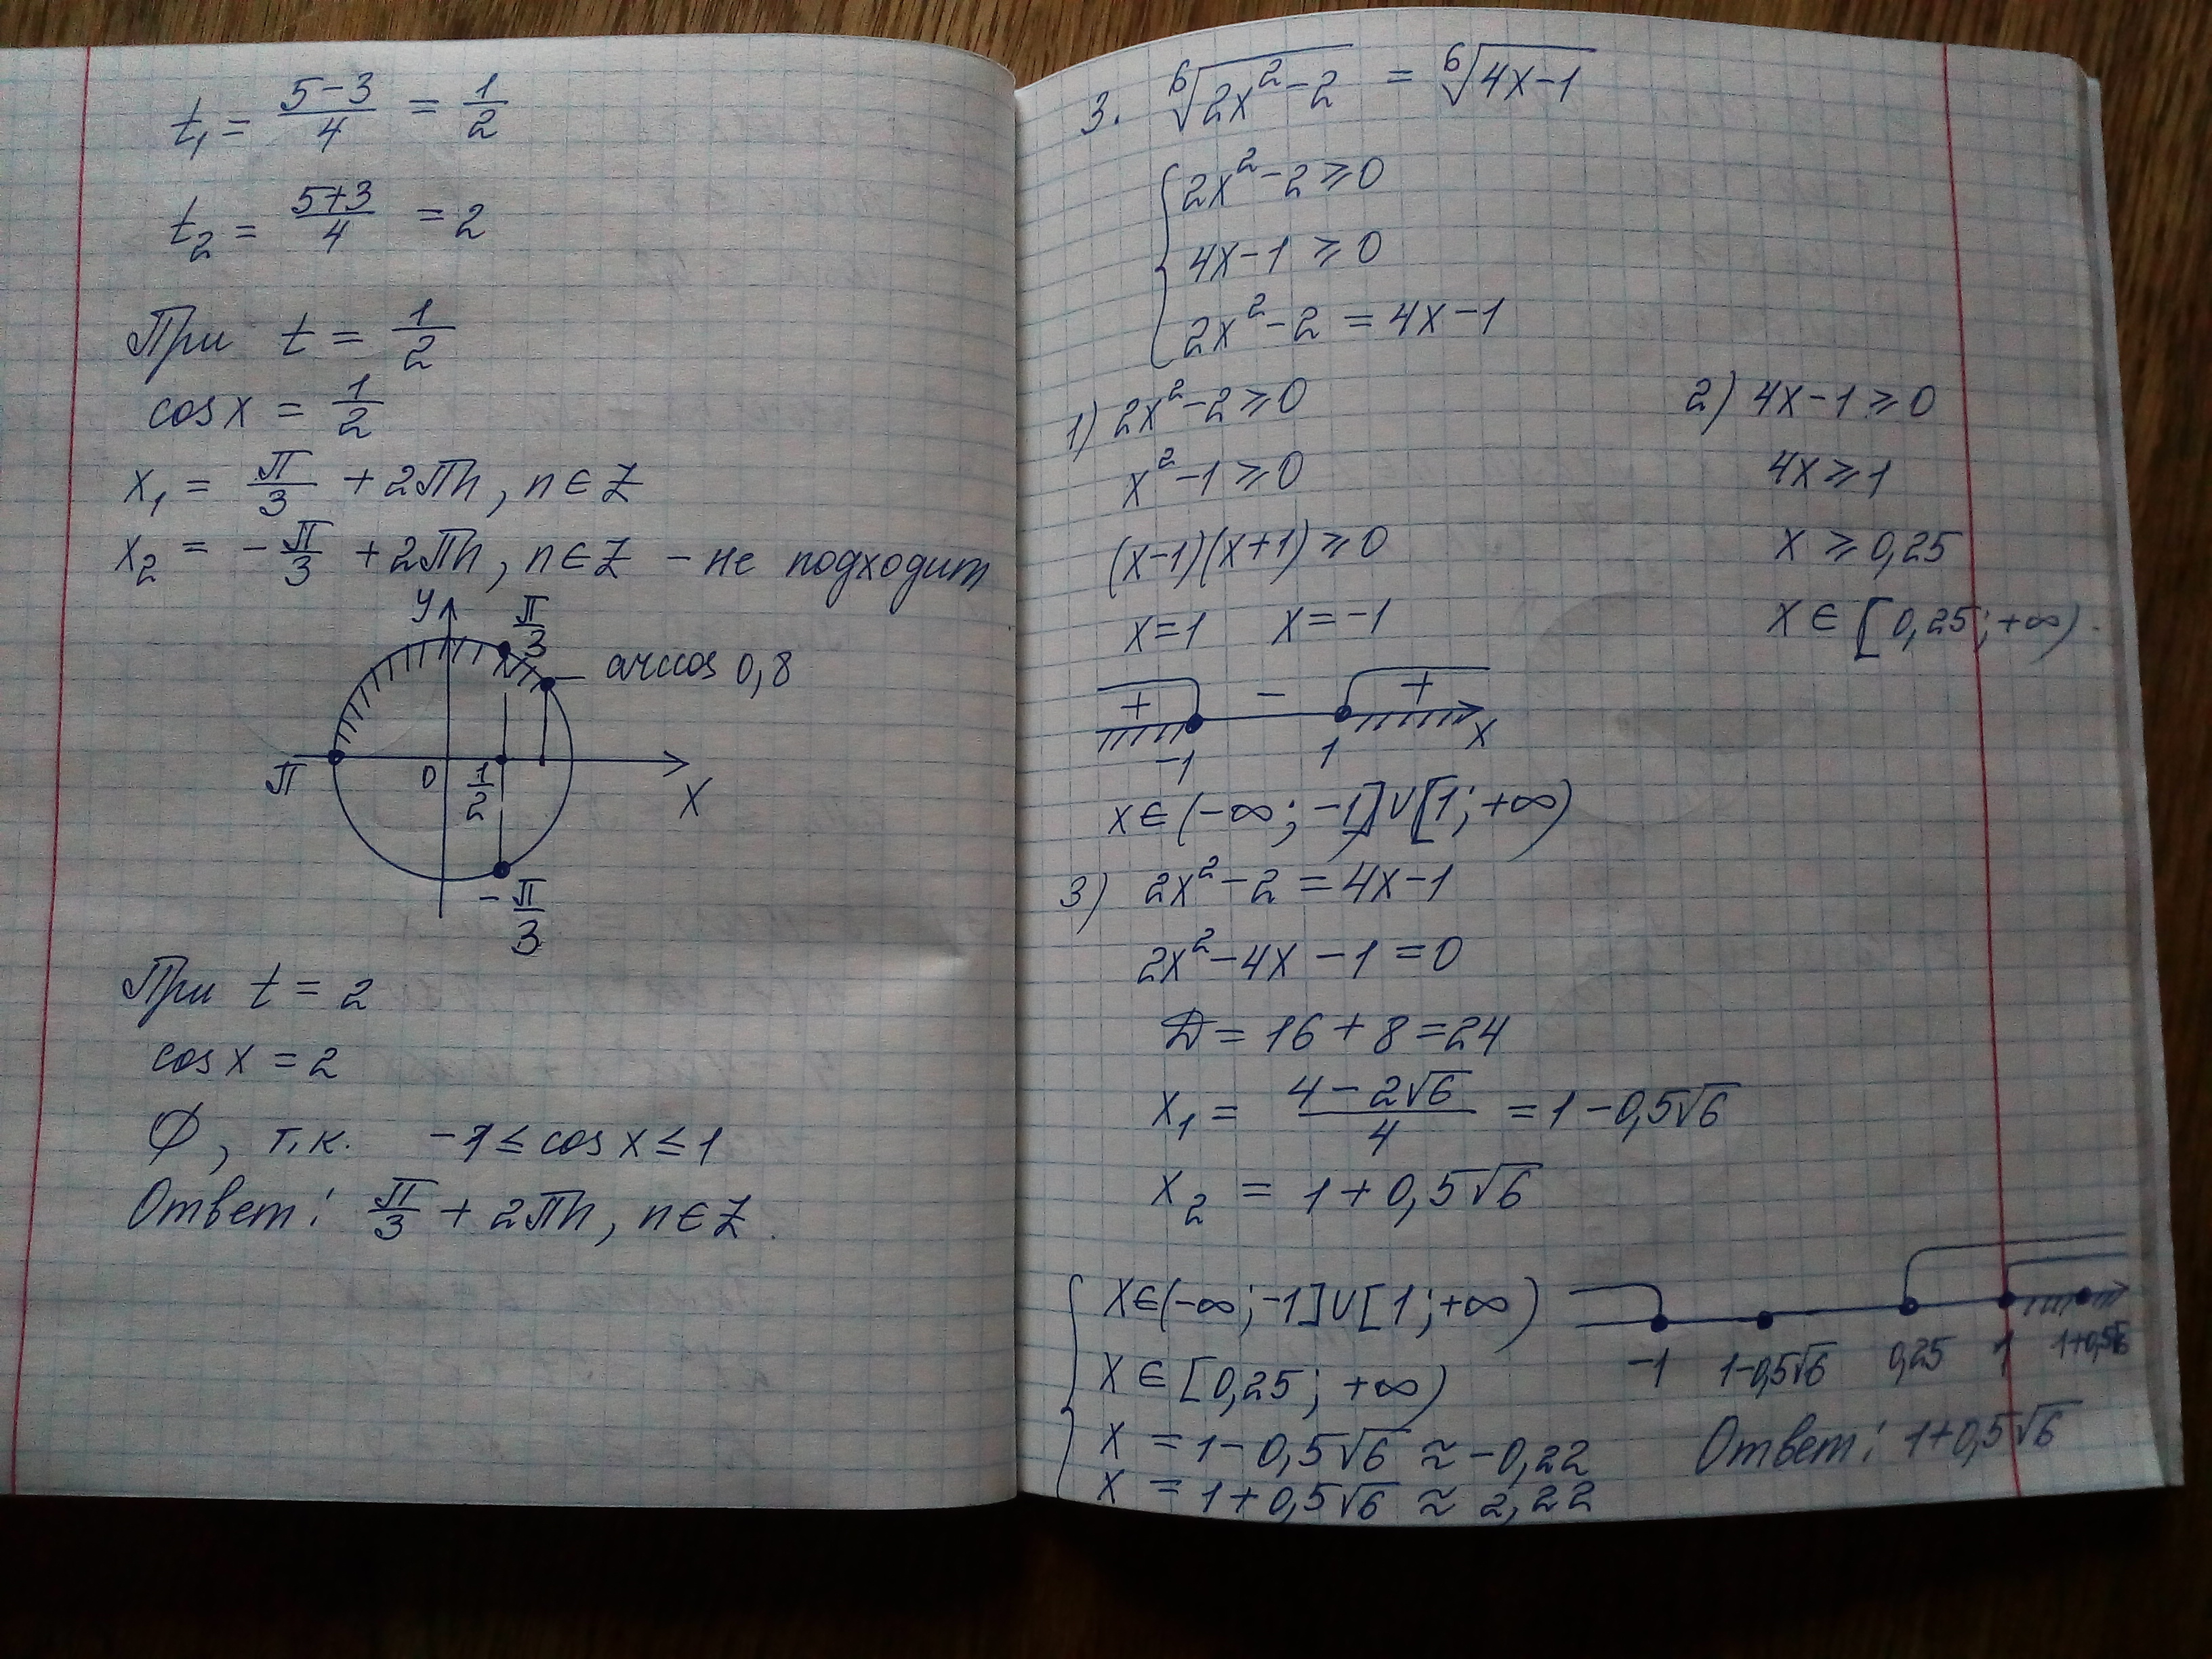 t₁ = (5-3)/4 = 1/2
t₂ = (5+3)/4 = 2
При t = 1/2
cos x = 1/2
x₁ = π/3 + 2πn, n ∈ Z
x₂ = -π/3 + 2πn, n ∈ Z - не подходит
y
π/3
arccos 0,8
π
0
1/2
x
-π/3
При t = 2
cos x = 2
Ø, т.к. -1 ≤ cos x ≤ 1
Ответ: π/3 + 2πn, n ∈ Z.
3. ⁶√(2x²-2) = ⁶√(4x-1)
{ 2x²-2 ≥ 0
4x-1 ≥ 0
2x²-2 = 4x-1
1) 2x²-2 ≥ 0
x²-1 ≥ 0
(x-1)(x+1) ≥ 0
x=1 x=-1
+ - +
-1 1 x
x ∈ (-∞; -1] ∪ [1; +∞)
2) 4x-1 ≥ 0
4x ≥ 1
x ≥ 0,25
x ∈ [0,25; +∞).
3) 2x²-2 = 4x-1
2x²-4x-1 = 0
D = 16+8 = 24
x₁ = (4-2√6)/4 = 1-0,5√6
x₂ = 1+0,5√6
{ x ∈ (-∞; -1] ∪ [1; +∞)
x ∈ [0,25; +∞)
x = 1-0,5√6 ≈ -0,22
x = 1+0,5√6 ≈ 2,22
-1 1-0,5√6 0,25 1 1+0,5√6
Ответ: 1+0,5√6